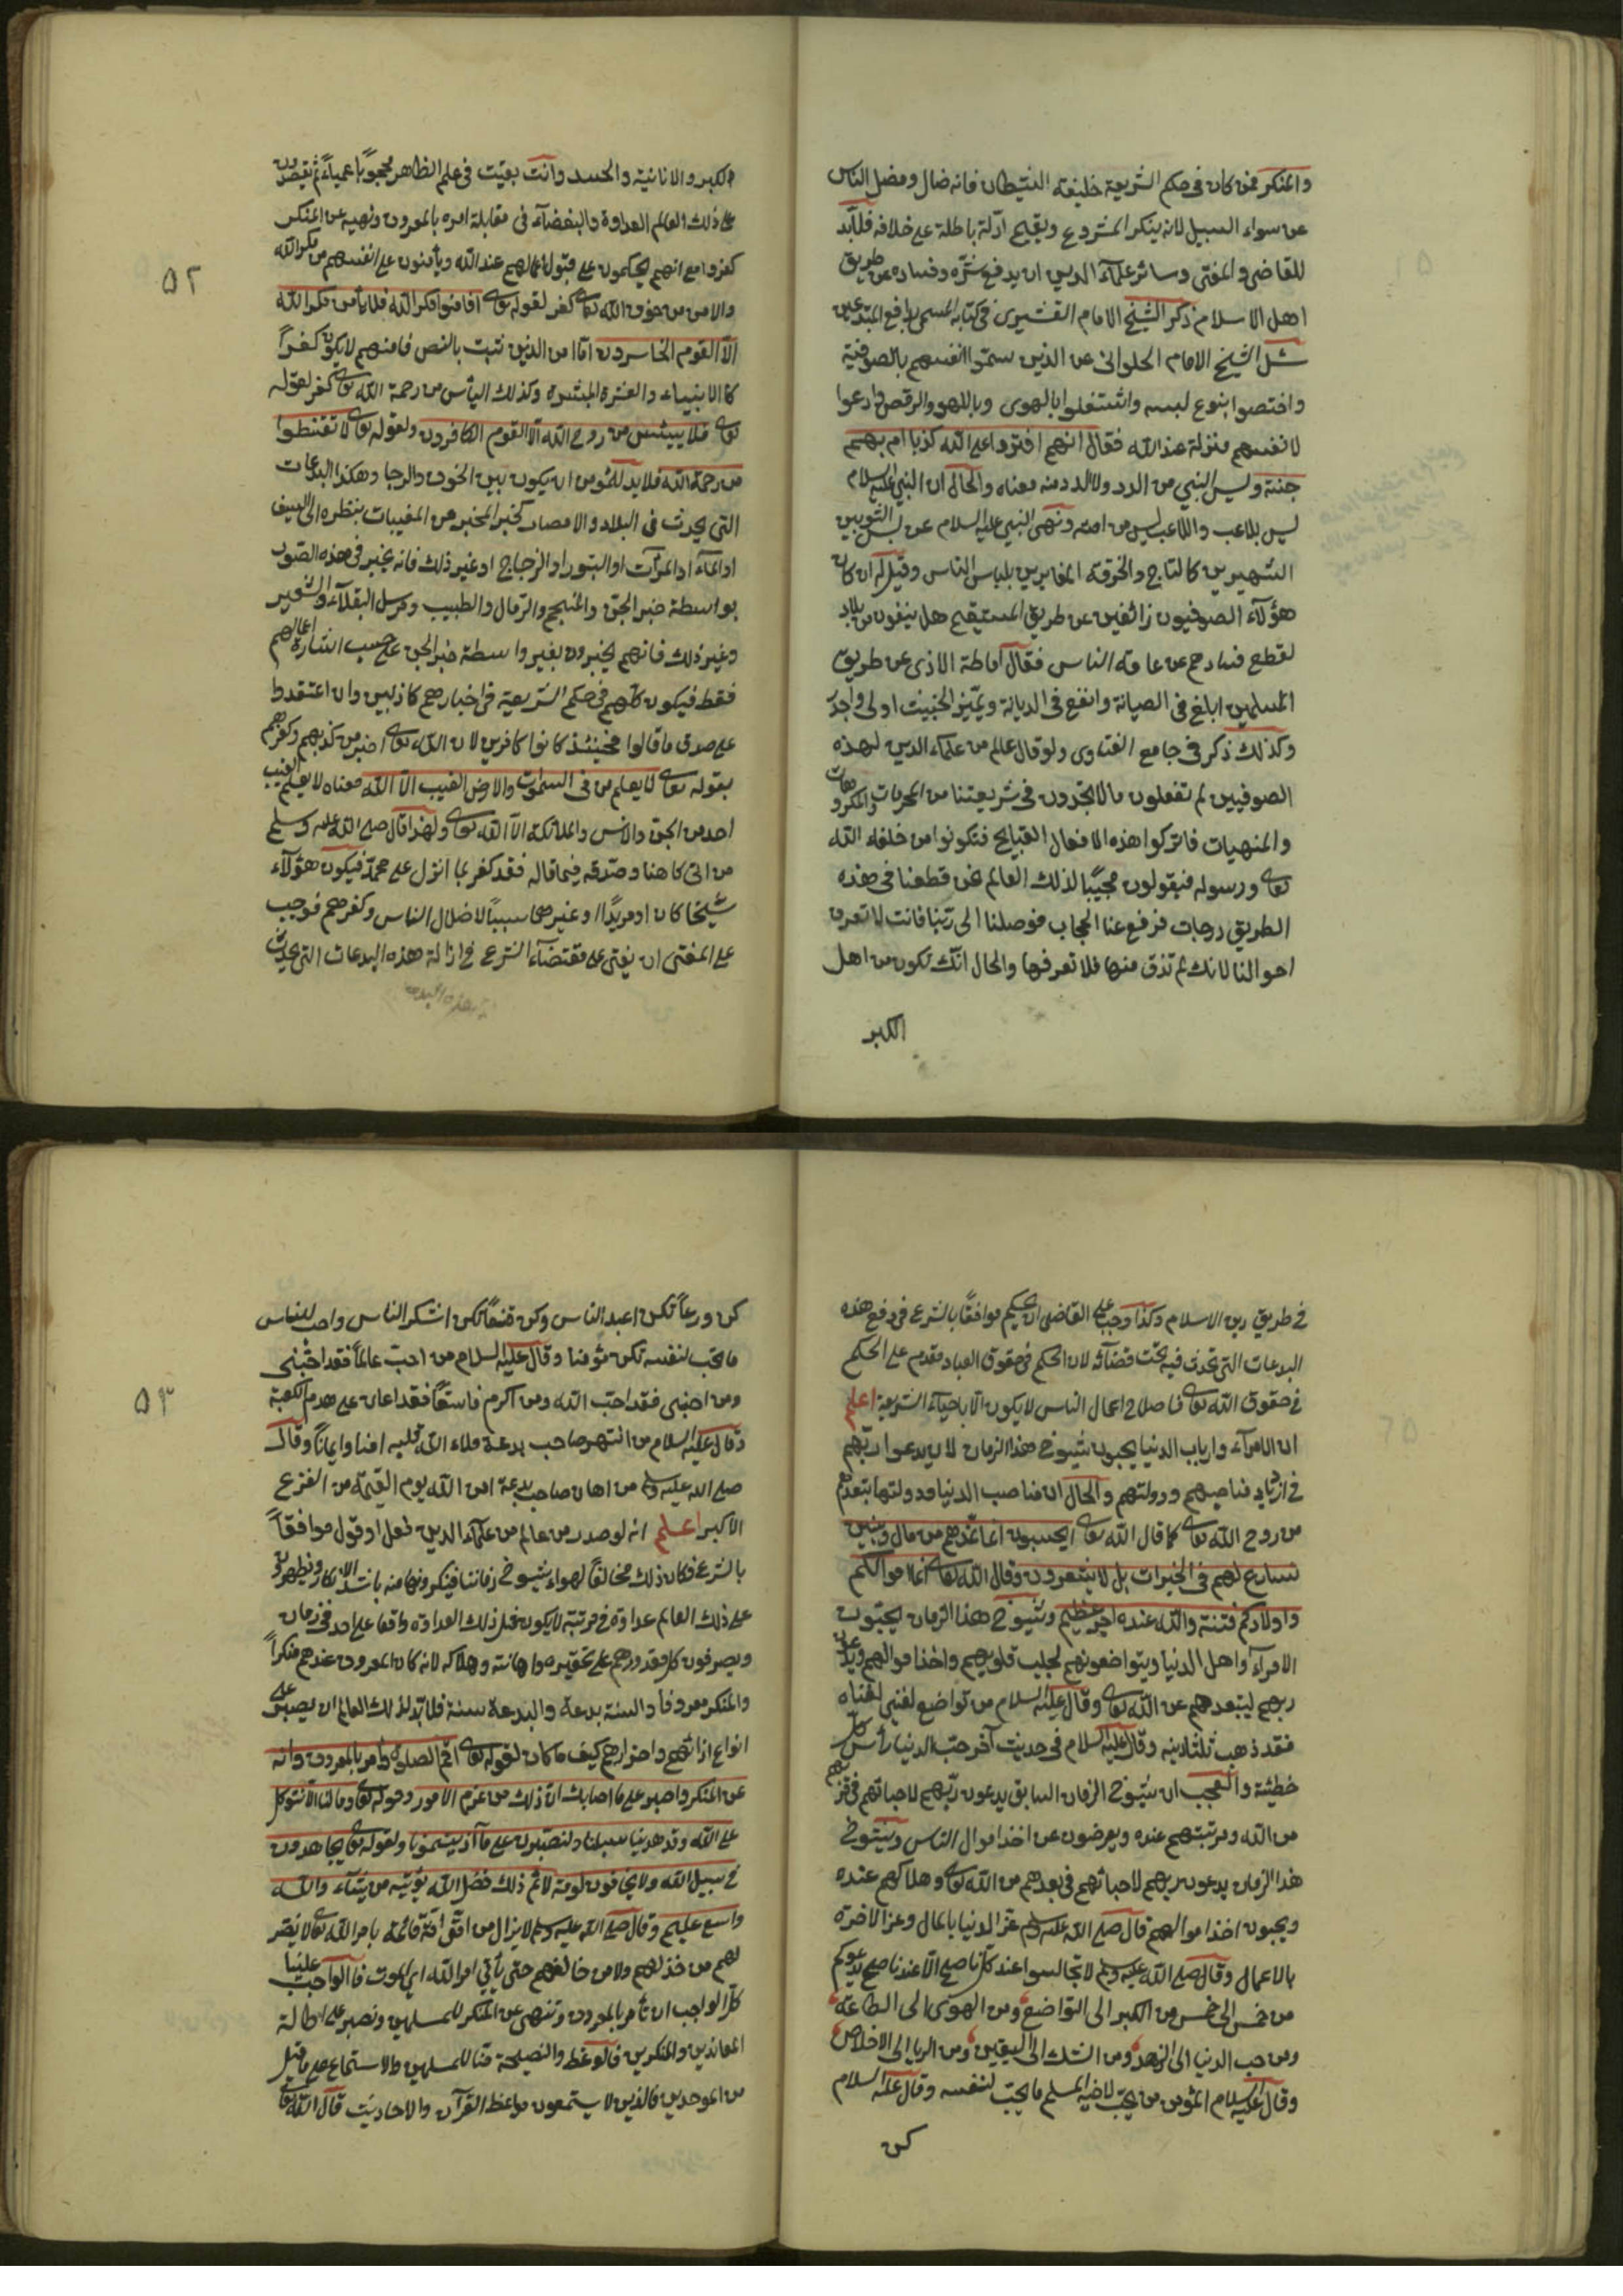 والمنكر فمن كان في حكم الشريعة خليفة الشيطان فانه ضال ومضل الناس
عن سواء السبيل لانه ينكر المشروع ويقيم ادلة باطلة على خلافه فلابد
للقاضي والمفتي وسائر علمآء الدين ان يدفع شره وفساده عن طريق
اهل الاسلام ذكر الشيخ الامام القشيرى في كتابه المسمى بدافع المبتدعين
سئل الشيخ الامام الحلوانى عن الذين سموا انفسهم بالصوفية
واختصوا بنوع لبسه واشتغلوا بالهوى وباللهو والرقص وادعوا
لانفسهم منزلة عند الله فقال انهم افتروا على الله كذبا ام بهم
جنة وليس النبي من الدد ولا الدد منه معناه والحال ان النبي عليه السلام
ليس بلاعب واللاعب ليس من امته ونهى النبي عليه السلام عن لبس الثوبين
الشهيرين كالتاج والخرقة المغايرين بلباس الناس وقيل له ان كان
هؤلآء الصوفيون زائغين عن طريق المستقيم هل ينفون من بلاد
لقطع فسادهم عن عامة الناس فقال اماطة الاذى عن طريق
المسلمين ابلغ في الصيانة وانفع في الديانة وتميز الخبيث اولى واجدر
وكذلك ذكر في جامع الفتاوى ولو قال عالم من علمآء الدين لهذه
الصوفيين لم تفعلون مالا تجدون في شريعتنا من المحرمات والمكروهات
والمنهيات فاتركوا هذه الافعال القبايح فتكونوا من خلفاء الله
تعالى ورسوله فيقولون مجيبا لذلك العالم نحن قطعنا في هذه
الطريق درجات فرفع عنا الحجاب فوصلنا الى ربنا فانت لا تعرف
احوالنا لانك لم تذق منها فلا تعرفها والحال انك تكون من اهل
الكبر
٥٢
الكبر والانانية والحسد وانت بقيت في علم الظاهر محجوبا عمياء ثم يقصدون
على ذلك العالم العداوة والبغضآء في مقابلة امره بالمعروف ونهيه عن المنكر
كفروا مع انهم يحكمون على قبول اعمالهم عند الله ويأمنون على انفسهم من مكر الله
والامن من خوف الله تعالى كفر لقوله تعالى افامنوا مكر الله فلا يأمن مكر الله
الا القوم الخاسرون اما امن الذين ثبت بالنص فامنهم لا يكون كفرا
كالانبياء والعشرة المبشرة وكذلك اليأس من رحمة الله تعالى كفر لقوله
تعالى فلا ييئس من روح الله الا القوم الكافرون ولقوله تعالى لا تقنطوا
من رحمة الله فلا بد للمؤمن ان يكون بين الخوف والرجا وهكذا البدعات
التي يحدث في البلاد والامصار كخبر المخبر من المغيبات بنظره الى السيف
او الماء او المرآت او البلور او الزجاج او غير ذلك فانه يخبر في هذه الصور
بواسطة خبر الجن والمنجم والرمال والطبيب ومرسل البقلآء والشعير
وغير ذلك فانهم يخبرون بغير واسطة خبر الجن على حسب اشارة اعمالهم
فقط فيكون كلهم في حكم الشريعة في اخبارهم كاذبين وان اعتقدوا
على صدق ما قالوا فحينئذ كانوا كافرين لان الله تعالى اخبر من كذبهم وكفرهم
بقوله تعالى لا يعلم من في السموات والارض الغيب الا الله معناه لا يعلم الغيب
احد من الجن والانس والملائكة الا الله تعالى ولهذا قال صلى الله عليه وسلم
من اتى كاهنا وصدقه فيما قاله فقد كفر بما انزل على محمد فيكون هؤلآء
شيخا كان او مريدا او غيرهما سببا لاضلال الناس وكفرهم فوجب
على المفتى ان يفتى على مقتضآء الشرع في ازالة هذه البدعات التي يحدث
في طريق دين الاسلام وكذا وجب على القاضى ان يحكم موافقا بالشرع في دفع هذه
البدعات التي تحدث فيه تحت قضآئه لان الحكم في حقوق العباد مقدم على الحكم
في حقوق الله تعالى فاصلاح اعمال الناس لا يكون الا باحيآء الشريعة اعلم
ان الامرآء وارباب الدنيا يحبون شيوخ هذا الزمان لان يدعوا ربهم
في ازدياد مناصبهم ودولتهم والحال ان مناصب الدنيا ودولتها بتعدهم
من روح الله تعالى كما قال الله تعالى ايحسبون انما نمدهم من مال وبنين
نسارع لهم في الخيرات بل لا يشعرون وقال الله تعالى انما اموالكم
واولادكم فتنة والله عنده اجر عظيم وشيوخ هذا الزمان يحبون
الامرآء واهل الدنيا ويتواضعونهم لجلب قلوبهم واخذ اموالهم ويدعون
ربهم ليبعدهم عن الله تعالى وقال عليه السلام من تواضع لغني لغناه
فقد ذهب ثلثا دينه وقال عليه السلام في حديث آخر حب الدنيا رأس كل
خطيئة والعجب ان شيوخ الزمان السابق يدعون ربهم لاحبائهم في قربهم
من الله ومرتبتهم عنده ويعرضون عن اخذ اموال الناس وشيوخ
هذا الزمان يدعون ربهم لاحبائهم في بعدهم من الله تعالى وهلاكهم عنده
ويحبون اخذ اموالهم قال صلى الله عليه وسلم عز الدنيا بالمال وعز الاخرة
بالاعمال وقال صلى الله عليه وسلم لا تجالسوا عند كل ناصح الا عند ناصح يدعوكم
من خمس الى خمس من الكبر الى التواضع ومن الهوى الى الطاعة
ومن حب الدنيا الى الزهد ومن الشك الى اليقين ومن الريا الى الاخلاص
وقال عليه السلام المؤمن من يحب لاخيه المسلم ما يحب لنفسه وقال عليه السلام
كن
٥٣
كن ورعا تكن اعبد الناس وكن قنعا تكن اشكر الناس واحب للناس
ما تحب لنفسك تكن مؤمنا وقال عليه السلام من احب عالما فقد احبنى
ومن احبنى فقد احب الله ومن اكرم فاسقا فقد اعان على هدم الكعبة
وقال عليه السلام من انتهر صاحب بدعة ملاء الله قلبه امنا وايمانا وقال
صلى الله عليه وسلم من اهان صاحب بدعة امن الله يوم القيمة من الفزع
الاكبر اعلم انه لو صدر من عالم من علمآء الدين فعل او قول موافقا
بالشرع فكان ذلك مخالفا لهواء شيوخ زماننا فينكرونها منه باشد الانكار ويظهرون
على ذلك العالم عداوة في مرتبة لا يكون مثل ذلك العداوة واقعا على احد في زمان
ويصرفون كل مقدورهم على تحقيره واهانته وهلاكه لانه كان المعروف عندهم منكرا
والمنكر معروفا والسنة بدعة والبدعة سنة فلا بد لذلك العالم ان يصبر على
انواع اذائهم واضرارهم كيف ما كان لقوله تعالى اقم الصلوة وأمر بالمعروف وانه
عن المنكر واصبر على ما اصابك ان ذلك من عزم الامور وقوله تعالى وما لنا الا نتوكل
على الله وقد هدينا سبلنا ولنصبرن على ما آذيتمونا ولقوله تعالى يجاهدون
في سبيل الله ولا يخافون لومة لائم ذلك فضل الله يؤتيه من يشآء والله
واسع عليم وقال صلى الله عليه وسلم لا يزال من امتى امة قائمة بامر الله تعالى لا يضر
لهم من خذلهم ولا من خالفهم حتى يأتي امر الله اي الموت فالواجب علينا
كل الواجب ان نأمر بالمعروف وننهى عن المنكر للمسلمين ونصبر على اطالة
المعاندين والمنكرين فالوعظ والنصيحة منا للمسلمين والاستماع على ما قيل
من الموحدين فالذين لا يستمعون مواعظ القرآن والاحاديث قال الله تعالى